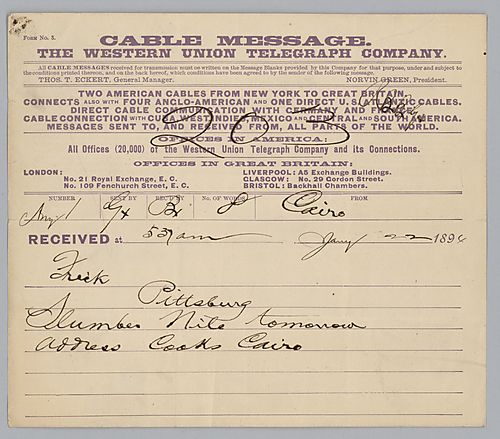 FORM No. 3.
CABLE MESSAGE.
THE WESTERN UNION TELEGRAPH COMPANY.
All CABLE MESSAGES received for transmission must be written on the Message Blanks provided by this Company for that purpose, under and subject to
the conditions printed thereon, and on the back hereof, which conditions have been agreed to by the sender of the following message.
THOS. T. ECKERT, General Manager. NORVIN GREEN, President.
TWO AMERICAN CABLES FROM NEW YORK TO GREAT BRITAIN.
CONNECTS ALSO WITH FOUR ANGLO-AMERICAN AND ONE DIRECT U.S. ATLANTIC CABLES.
DIRECT CABLE COMMUNICATION WITH GERMANY AND FRANCE.
CABLE CONNECTION WITH CUBA, WEST INDIES, MEXICO AND CENTRAL AND SOUTH AMERICA.
MESSAGES SENT TO, AND RECEIVED FROM, ALL PARTS OF THE WORLD.
OFFICES IN AMERICA:
All Offices (20,000) of the Western Union Telegraph Company and its Connections.
OFFICES IN GREAT BRITAIN:
LONDON: LIVERPOOL: A5 Exchange Buildings.
No. 21 Royal Exchange, E. C. GLASGOW: No. 29 Gordon Street.
No. 109 Fenchurch Street, E. C. BRISTOL: Backhall Chambers.
NUMBER SENT BY REC'D BY No. OF WORDS FROM
8 Cairo
RECEIVED at 557 am Jany 22 1896
Frick
Pittsburg
Slumber Nile tomorrow
address Cooks Cairo